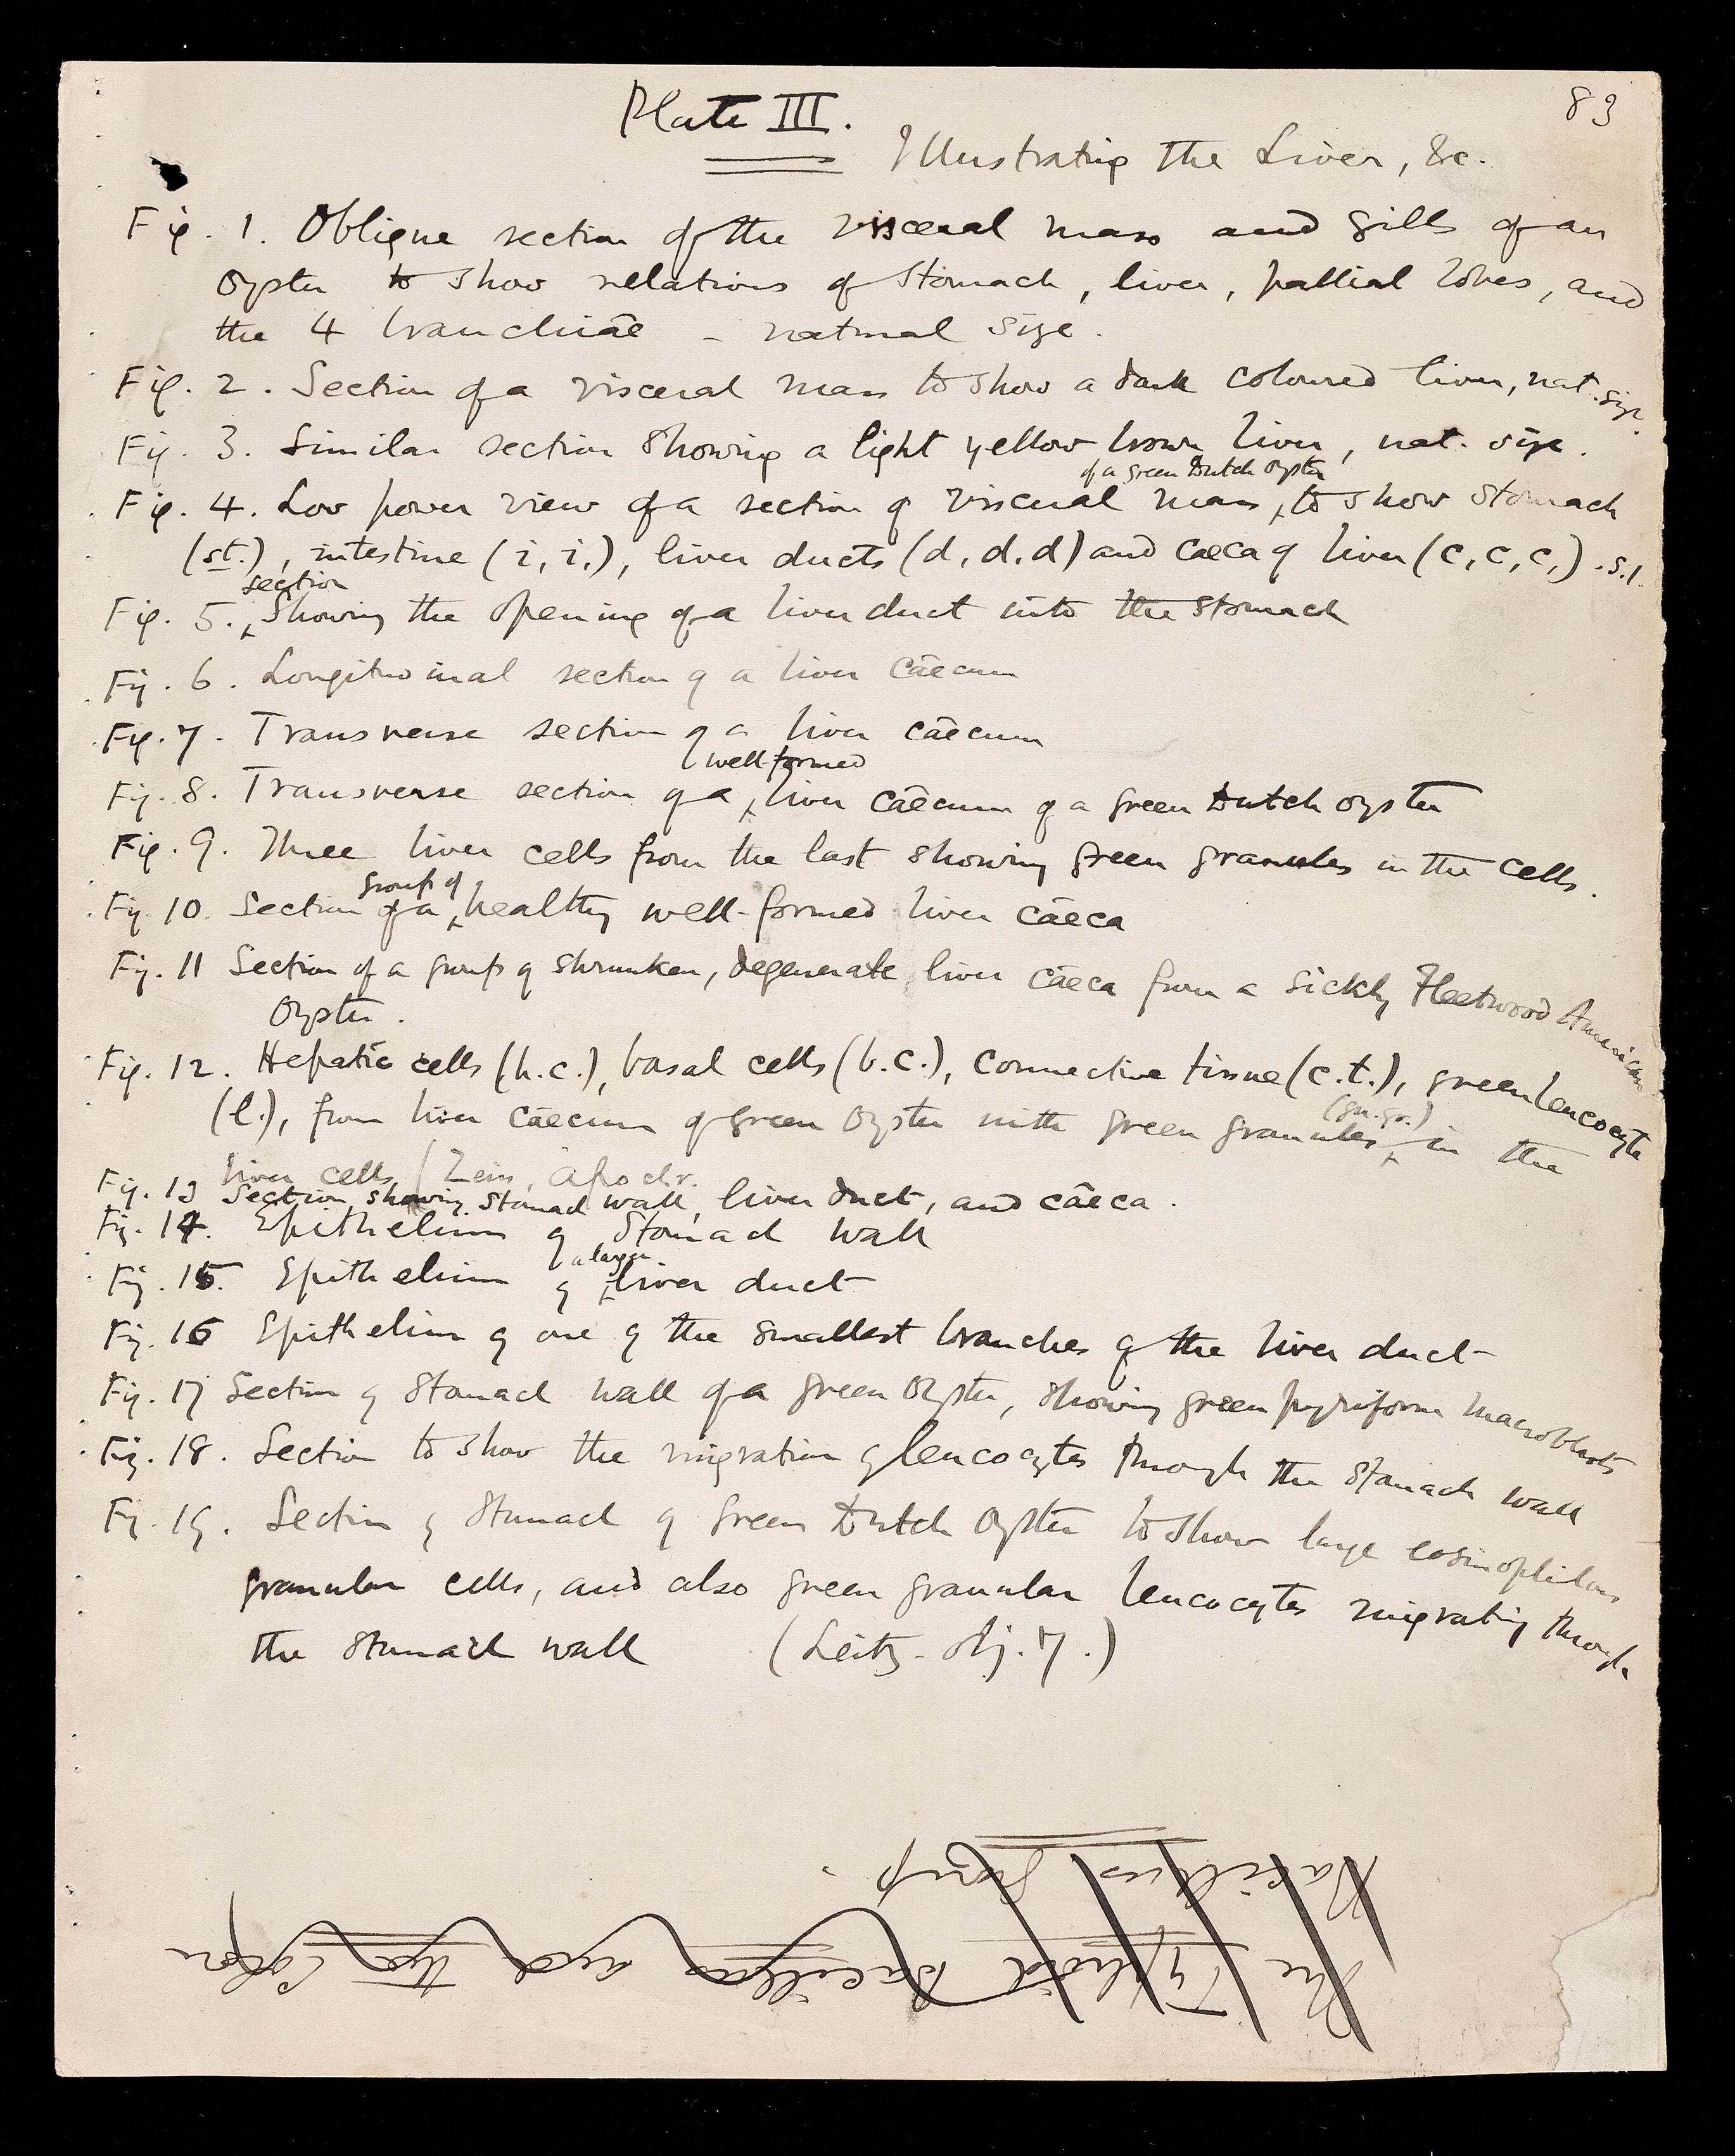 83
Plate III.
Illustrating the Liver, &c.
Fig. 1. Oblique section of the visceral mass and gills of an
oyster to show relations of stomach, liver, pallial lobes, and
the 4 branchiae - natural size.
Fig. 2. Section of a visceral mass to show a dark coloured liver, nat. size.
Fig. 3. Similar section showing a light yellow brown liver, nat. size.
of a green Dutch oyster
Fig. 4. Low power view of a section of visceral mass, to show stomach
(st.), intestine (i, i,), liver ducts (d, d, d) and caeca of liver (c, c, c,) . s.l.
section
Fig. 5. Showing the opening of a liver duct into the stomach
Fig. 6. Longitudinal section of a liver caecum
Fig. 7. Transverse section of a liver caecum
well-formed
Fig. 8. Transverse section of a liver caecum of a green Dutch oyster
Fig. 9. Three liver cells from the last showing green granules in the cells.
group of
Fig. 10. Section of a healthy well-formed liver caeca
Fig. 11 Section of a group of shrunken, degenerate liver caeca from a sickly Fleetwood American
Oyster.
Fig. 12. Hepatic cells (h.c.), basal cells (b.c.), connective tissue (c.t.), green leucocyte
(gn. gr.)
(l.), from liver caecum of green oyster with green granules in the
liver cells (Zeiss, apochr.
Fig. 13 Section showing stomach wall, liver duct, and caeca.
Fig. 14. Epithelium of stomach wall
a larger
Fig. 15. Epithelium of liver duct
Fig. 16 Epithelium of one of the smallest branches of the liver duct
Fig. 17 Section of stomach wall of a green oyster, showing green pyriform macroblasts
Fig. 18. Section to show the migration of leucocytes through the stomach wall
Fig. 19. Section of stomach of green Dutch oyster to show large eosinophilous
granular cells, and also green granular leucocytes migrating through
the stomach wall (Leitz. obj. 7.)
The Typhoid Bacillus and the Colon
Bacillus Group.